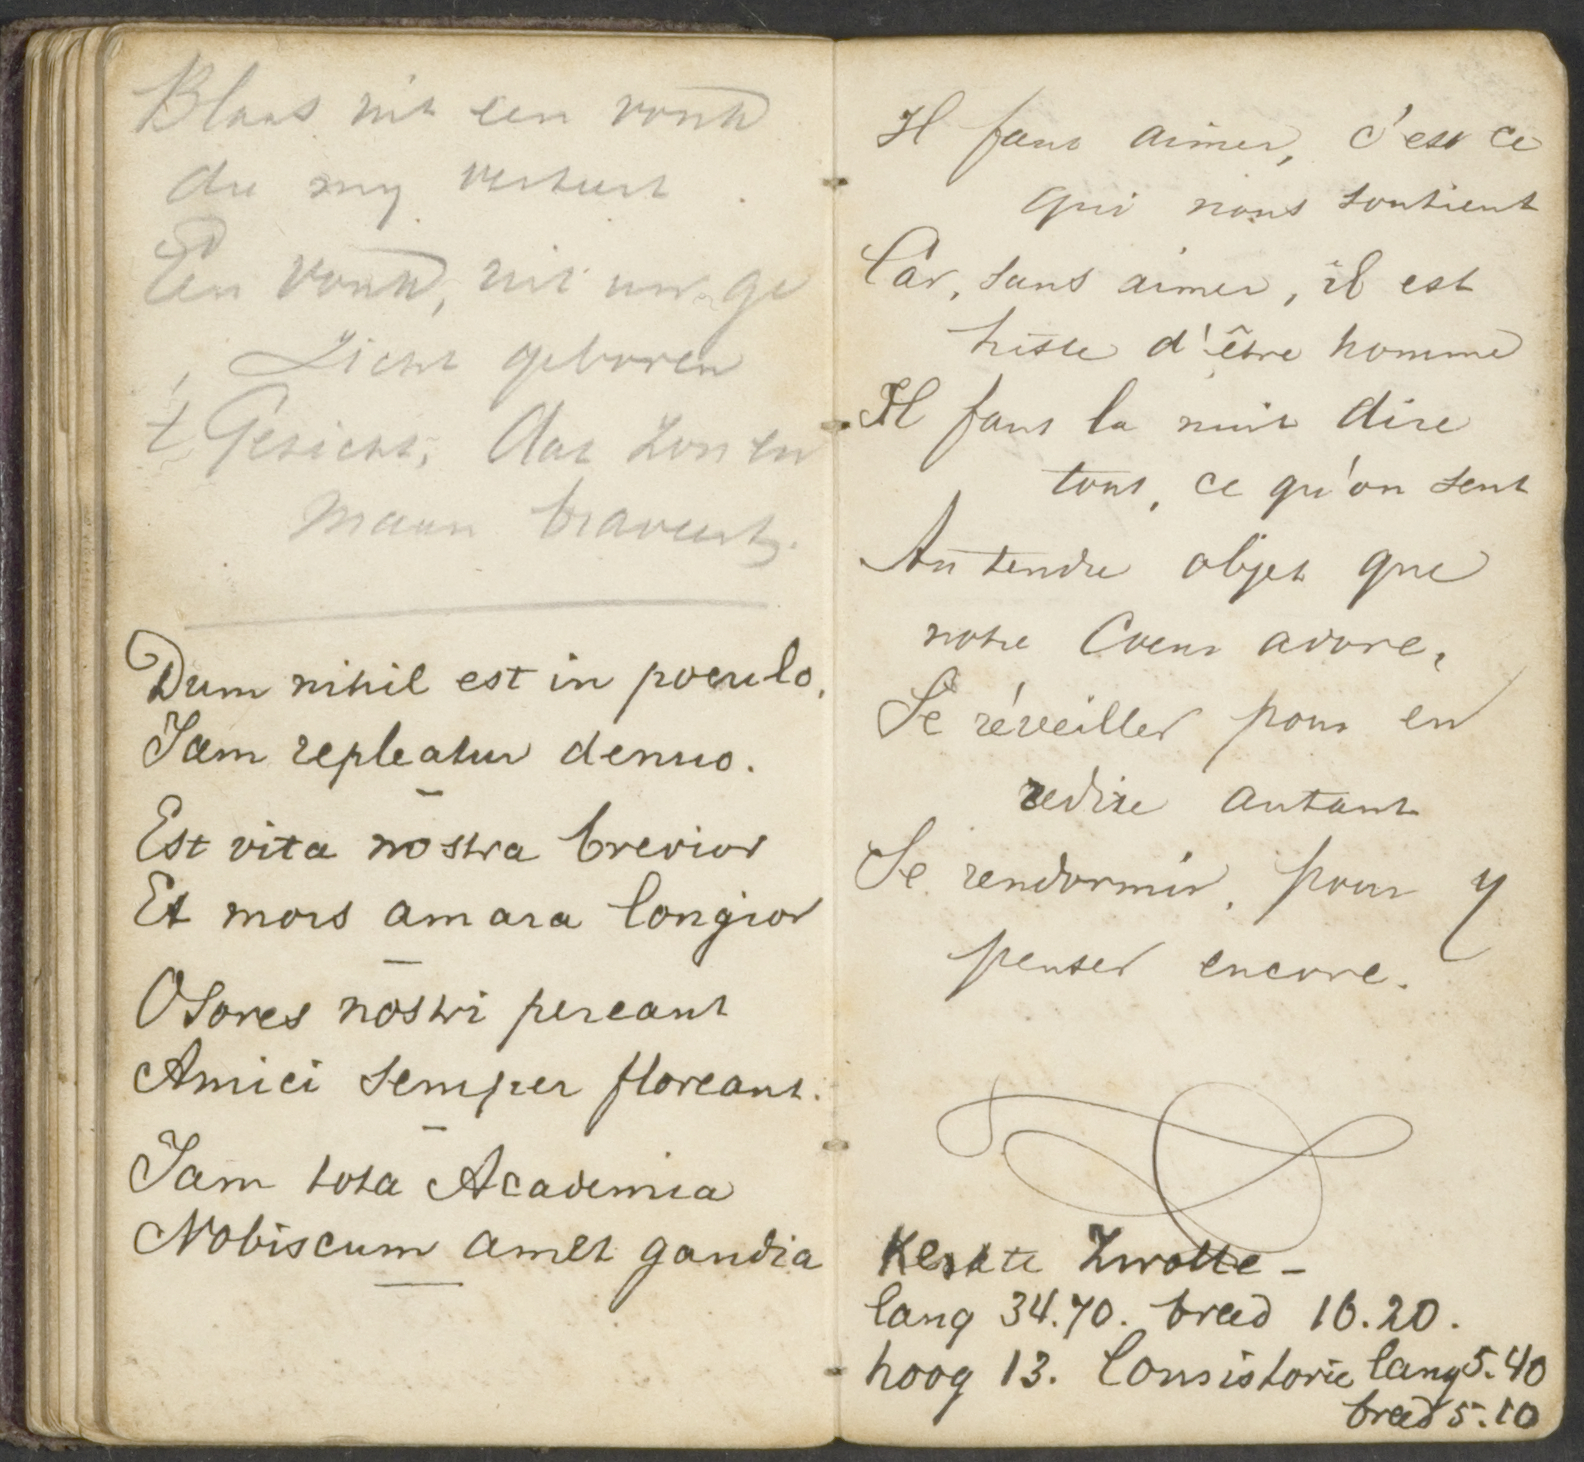 Blaas uit een vonk
die my verteert.
Een vonk, uit uw ge
zicht geboren
't Gezicht, dat zon en
maan braveert.
Dum nihil est in poculo,
Jam repleatur denuo.
Est vita nostra brevior
Et mors amara longior
Osores nostri pereant
Amici semper floreant.
Jam tota Academia
Nobiscum amet gaudia
Il faut aimer, c'est ce
qui nous soutient
Car, sans aimer, il est
triste d'être homme
Il faut la nuit dire
tout, ce qu'on sent
Au tendre objet que
notre Coeur adore,
Se réveiller pour en
redire autant
Se rendormir, pour y
penser encore.
Kerkte Zwolle -
lang 34.70. breed 16.20.
hoog 13. Consistorie lang 5.40
breed 5.10